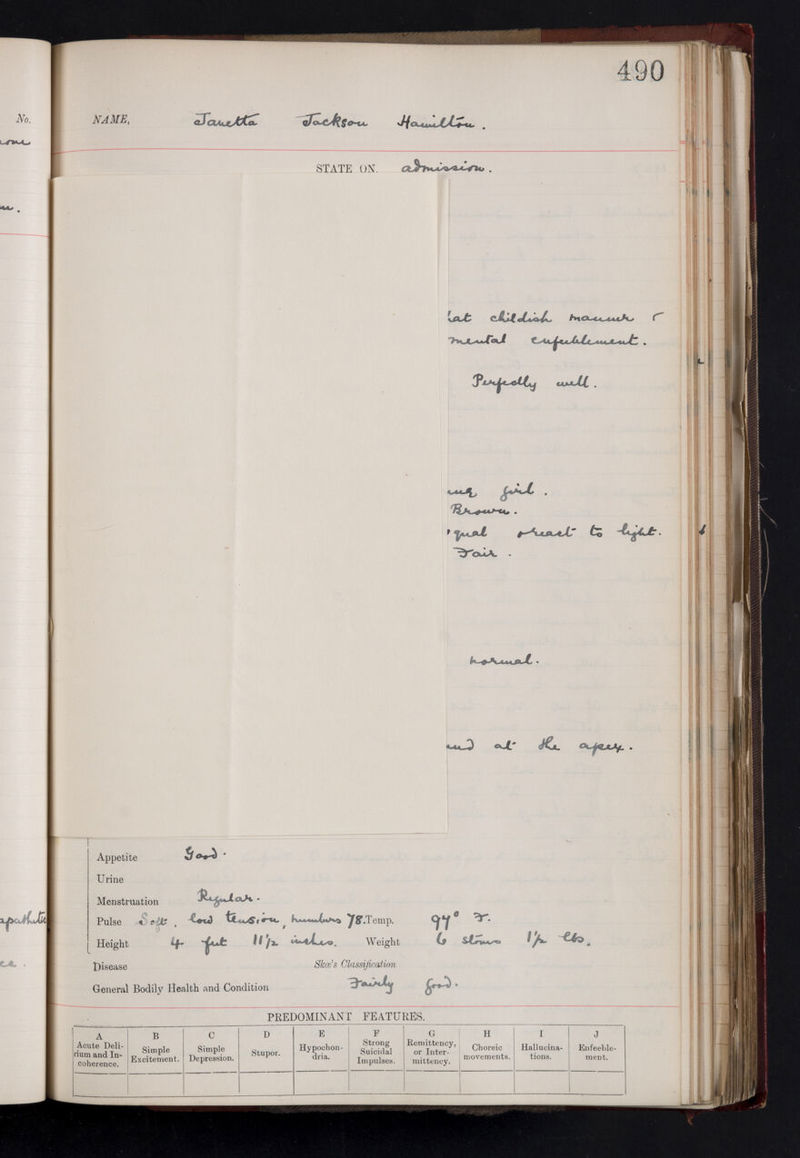 490
No.
NAME, Janetta Jackson Hamilton.
STATE ON admission.
childish manner
mental enfeeblement.
Perfectly well.
girl.
Brown.
react to light.
Fair.
normal.
at the apex.
Appetite Good.
Urine
Menstruation Regular.
Pulse Soft, low tension, numbers 78. Temp. 97° F.
Height 4 feet 11 1/2 inches. Weight 6 stones 1 1/2 lbs.
Disease Skæ's Classification
General Bodily Health and Condition Fairly good.
PREDOMINANT FEATURES.
A B C D E F G H I J
Acute Delirium and Incoherence. Simple Excitement. Simple Depression. Stupor. Hypochondria. Strong Suicidal Impulses. Remittency, or Intermittency. Choreic movements. Hallucinations. Enfeeblement.